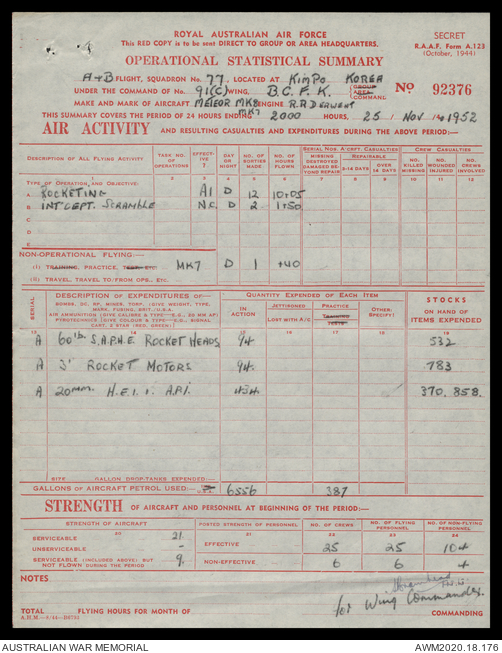 ROYAL AUSTRALIAN AIR FORCE
This RED COPY is to be sent DIRECT TO GROUP OR AREA HEADQUARTERS.
SECRET
R.A.A.F. Form A.123
(October, 1944)
OPERATIONAL STATISTICAL SUMMARY
A+B FLIGHT, SQUADRON No. 77, LOCATED AT KIMPO KOREA
UNDER THE COMMAND OF No. 91(C) WING, B.C.F.K. GROUP AREA COMMAND.
No 92376
MAKE AND MARK OF AIRCRAFT METEOR MK8 ENGINE R.R DERWENT
MK7
THIS SUMMARY COVERS THE PERIOD OF 24 HOURS ENDING 2000 HOURS, 25 / NOV / 1952
AIR ACTIVITY AND RESULTING CASUALTIES AND EXPENDITURES DURING THE ABOVE PERIOD:—
DESCRIPTION OF ALL FLYING ACTIVITY
TASK NO. OF OPERATIONS
EFFECTIVE?
DAY OR NIGHT
NO. OF SORTIES MADE
NO. OF HOURS FLOWN
SERIAL NOS. A'CRFT. CASUALTIES
MISSING DESTROYED DAMAGED BEYOND REPAIR
REPAIRABLE
OVER 14 DAYS
CREW CASUALTIES
NO. KILLED MISSING
NO. WOUNDED INJURED
NO. CREWS INVOLVED
TYPE OF OPERATION AND OBJECTIVE:
A ROCKETING A1 D 12 10+05
B INTCEPT. SCRAMBLE N.C. D 2 1+50
C
D
E
NON-OPERATIONAL FLYING:—
(I) TRAINING, PRACTICE, TEST, ETC. MK7 D 1 +40
(II) TRAVEL, TRAVEL TO/FROM OPS., ETC.
SERIAL
DESCRIPTION OF EXPENDITURES OF—
BOMBS, DC, RP, MINES, TORP. (GIVE WEIGHT, TYPE, MARK, FUSING, BRIT./U.S.A.
AIR AMMUNITION (GIVE CALIBRE & TYPE—E.G., 20 MM AP)
PYROTECHNICS (GIVE COLOUR & TYPE—E.G., SIGNAL CART. 2 STAR (RED, GREEN).
QUANTITY EXPENDED OF EACH ITEM
IN ACTION
JETTISONED
LOST WITH A/C
PRACTICE
TRAINING TESTS
OTHER: SPECIFY:
STOCKS
ON HAND OF ITEMS EXPENDED
A 60lb. S.A.P.H.E. ROCKET HEADS 94 532
A 3" ROCKET MOTORS 94 783
A 20mm. H.E.I. A.P.I. 434 370,858.
SITE GALLON DROP-TANKS EXPENDED:—
GALLONS OF AIRCRAFT PETROL USED:— 6556 387
STRENGTH OF AIRCRAFT AND PERSONNEL AT BEGINNING OF THE PERIOD:—
STRENGTH OF AIRCRAFT
POSTED STRENGTH OF PERSONNEL
NO. OF CREWS
NO. OF FLYING PERSONNEL
NO. OF NON-FLYING PERSONNEL
SERVICEABLE 21
UNSERVICEABLE –
SERVICEABLE (INCLUDED ABOVE) BUT NOT FLOWN DURING THE PERIOD 9
EFFECTIVE 25 25 104
NON-EFFECTIVE 6 6 4
NOTES
for Wing Commander
COMMANDING
TOTAL FLYING HOURS FOR MONTH OF
AUSTRALIAN WAR MEMORIAL
AWM2020.18.176